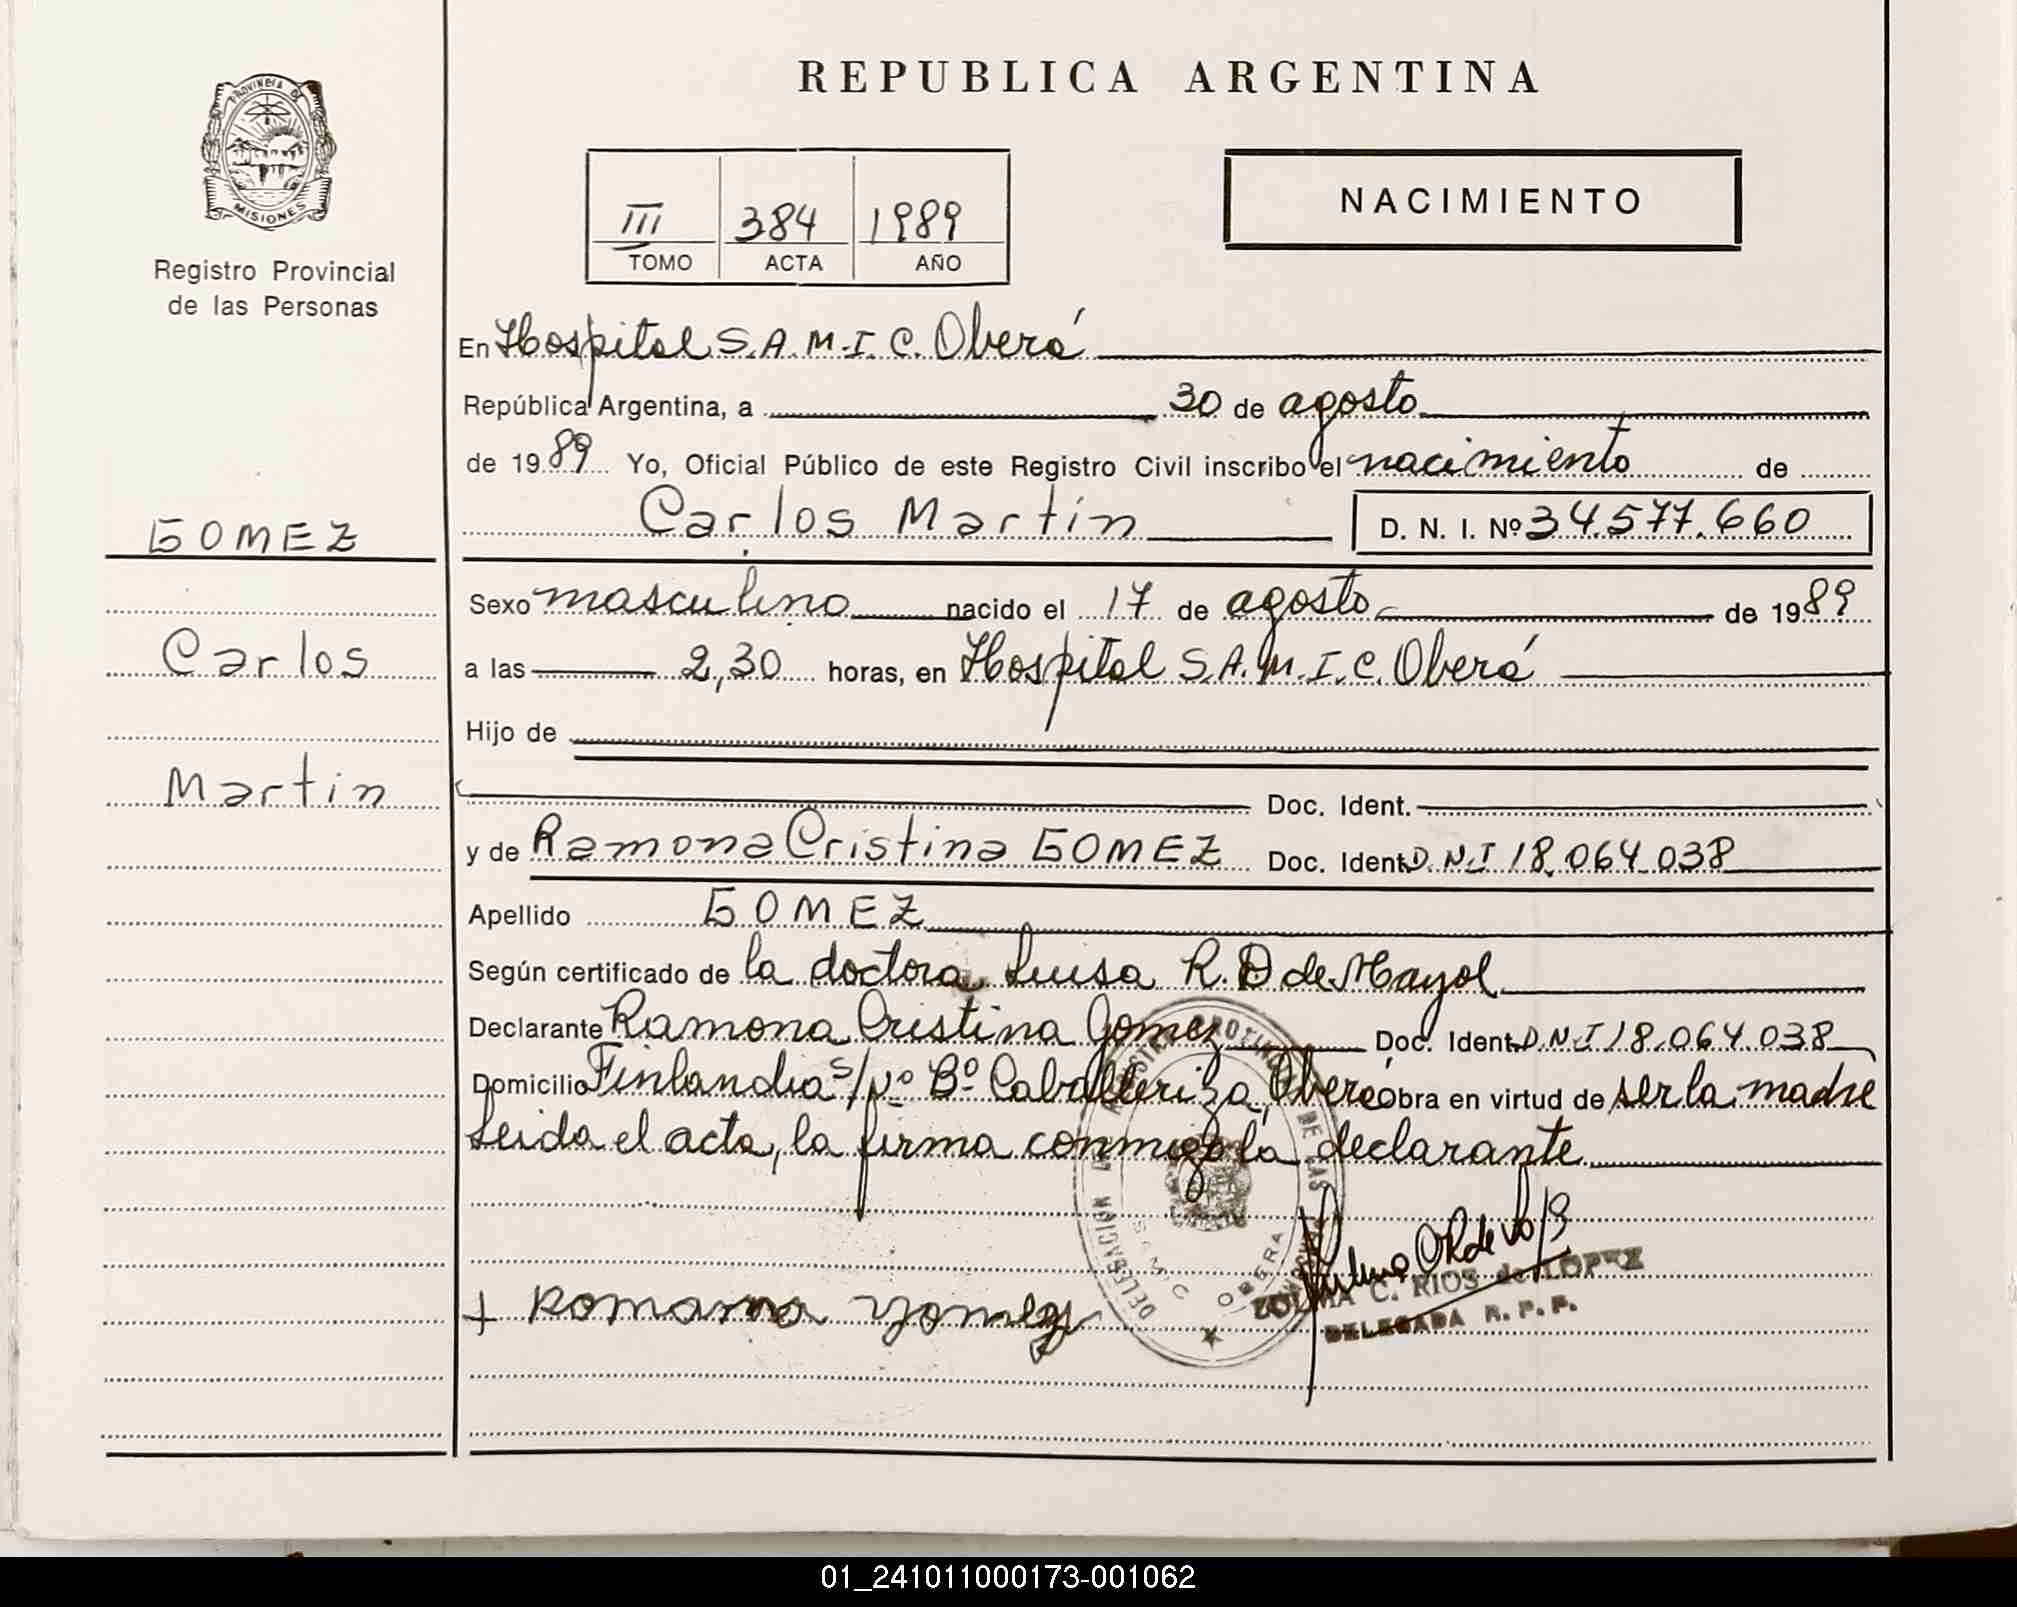 PROVINCIA DE
MISIONES
Registro Provincial
de las Personas
GOMEZ
Carlos
Martin
REPUBLICA ARGENTINA
III 384 1989
TOMO ACTA AÑO
NACIMIENTO
En Hospital S.A.M.I.C. Oberá
República Argentina, a 30 de agosto
de 1989 Yo, Oficial Público de este Registro Civil inscribo el nacimiento de
Carlos Martín D. N. I. Nº 34.577.660
Sexo masculino nacido el 17 de agosto de 1989
a las 2,30 horas, en Hospital S.A.M.I.C. Oberá
Hijo de
Doc. Ident.
y de Ramona Cristina GOMEZ Doc. Ident. D.N.I 18.064.038
Apellido GOMEZ
Según certificado de la doctora Luisa R. D de Mayol
Declarante Ramona Cristina Gomez Doc. Ident. D.N.I 18.064.038
Domicilio Finlandia s/Nº Bº Caballeriza, Oberá obra en virtud de ser la madre
Leida el acta, la firma conmigo la declarante
DELEGACION REGISTRO PROVINCIAL DE LAS PERSONAS
OBERA
ZULMA C. RIOS de LOPEZ
DELEGADA R. P. P.
+ Romana Gomez
01_241011000173-001062